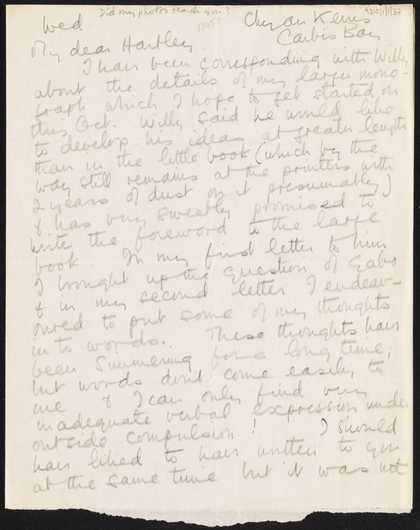 Did my photos reach you?
Wed
Chy an Kerris
Carbis Bay
My dear Hartley
I have been corresponding with Willy
about the details of my larger mono-
graph which I hope to get started on
this Oct. Willy said he would like
to develop his ideas at greater length
than in the little book (which by the
way still remains at the printers with
2 years of dust on it presumably)
& has very sweetly promised to
write the foreword to the large
book. In my first letter to him
I brought up the question of Gabo
& in my second letter I endeav-
oured to put some of my thoughts
in to words. These thoughts have
been simmering for a long time;
but words dont come easily to
me & I can only find very
inadequate verbal expression under
outside compulsion! I should
have liked to have written to you
at the same time but it was not